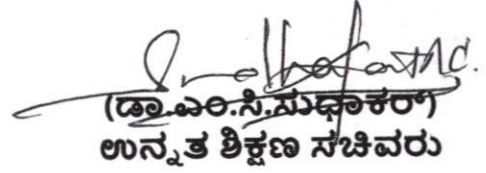 (ಡಾ.ಎಂ.ಸಿ.ಸುಧಾಕರ್)
ಉನ್ನತ ಶಿಕ್ಷಣ ಸಚಿವರು